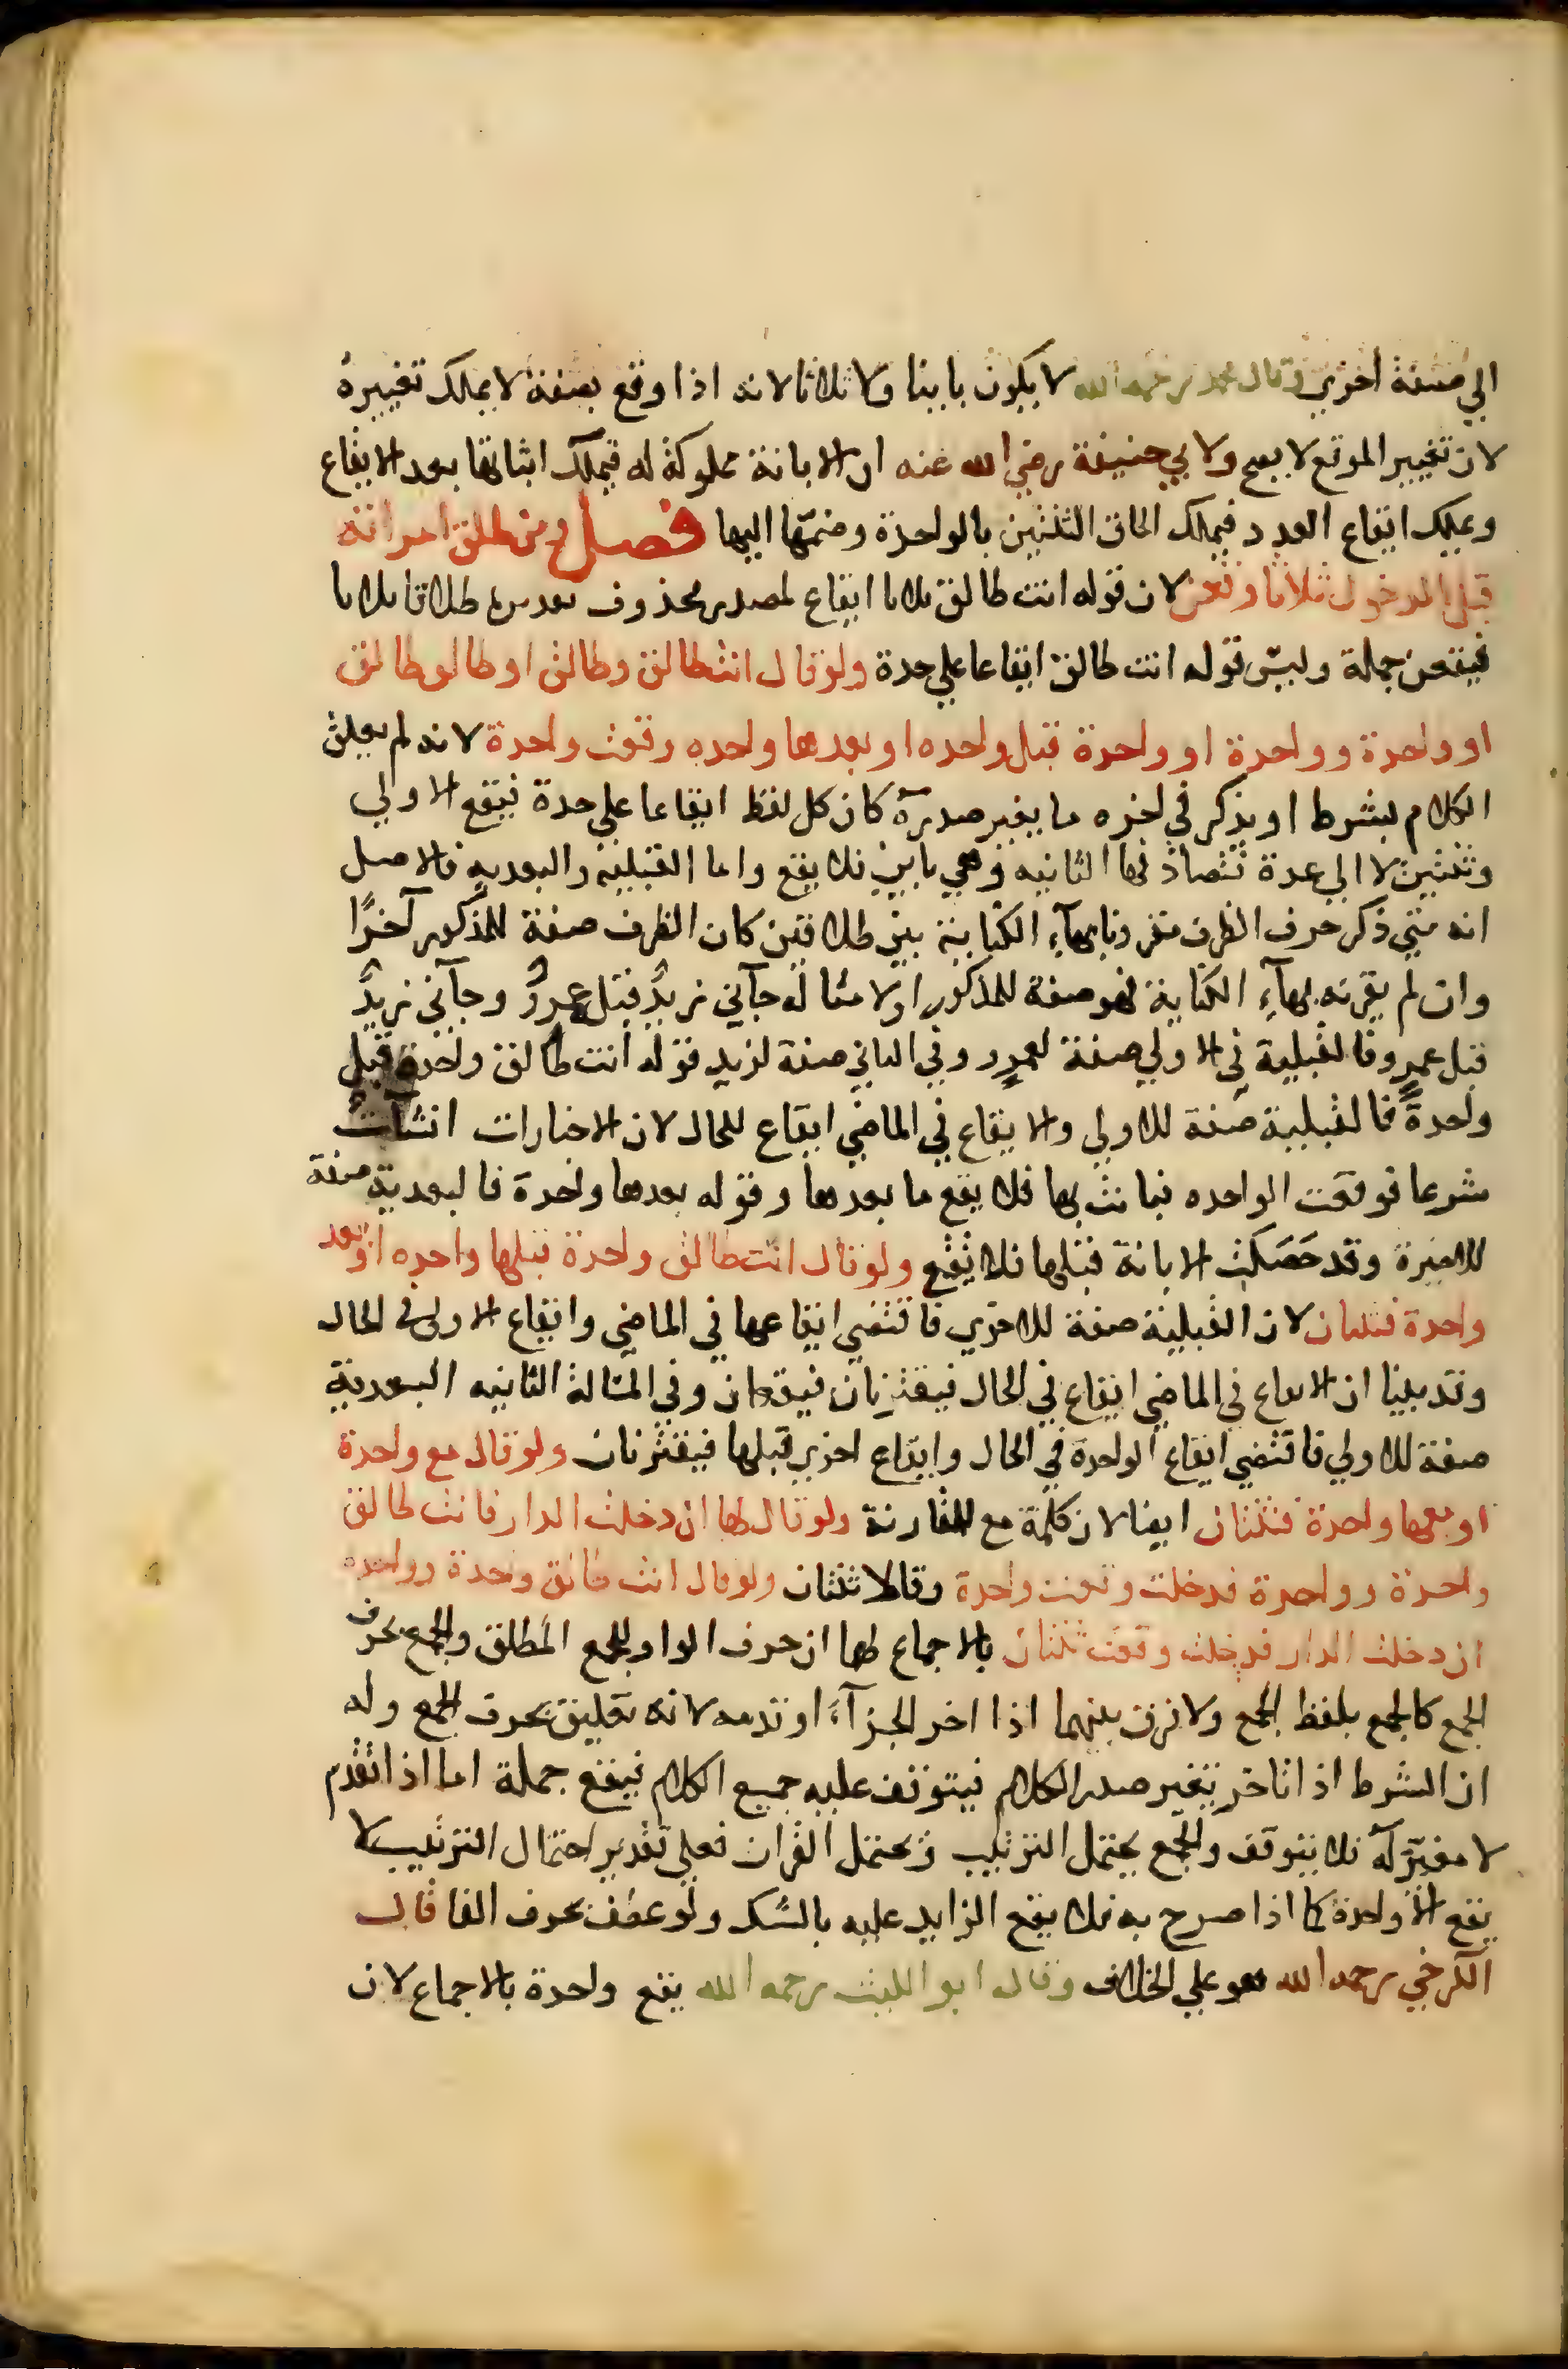 الي صفة اخري وقال محمد رحمه الله لا يكون باينا ولا ثلاثا لانه اذا وقع بصفة لا يملك تغييره
لان تغيير الموقع لا يصح ولابي حنيفة رضي الله عنه ان الابانة مملوكة له فيملك اثباتها بعد الايقاع
ويملك ايقاع العدد فيملك الحاق الثنتين بالواحدة وضمّها اليها فصل ومن طلق امراته
قبل الدخول ثلاثا وقعن لان قوله انت طالق ثلاثا ايقاع لمصدر محذوف تقديره طلاقا ثلاثا
فيقعن جملة وليس قوله انت طالق ايقاعا علي حدة ولو قال انت طالق وطالق او طالق طالق
او واحدة وواحدة او واحدة قبل واحده او بعدها واحده وقعت واحدة لانه لم يعلق
الكلام بشرط او يذكر في اخره ما يغير صدره كان كل لفظ ايقاعا علي حدة فيقع الاولي
وتبين لا الي عدة تصادفها الثانيه وهي باين فلا يقع واما القبلية والبعديه فالاصل
انه متي ذكر حرف الظرف مقرونا بهآء الكناية بين طلاقين كان الظرف صفة للمذكور آخرًا
وان لم يقرنه بهآء الكناية فهو صفة للمذكور اولا مثاله جآني زيدٌ قبله عمروٌ وجآني زيدٌ
قبل عمرٍو فالقبلية في الاولي صفة لعمرٍو وفي الثاني صفة لزيد فقوله انت طالق واحدة قبل
واحدةً فالقبلية صفة للاولي والايقاع في الماضي ايقاع للحال لان الاخبارات انشآت
شرعا فوقعت الواحده فبانت بها فلا يقع ما بعدها وقوله بعدها واحدة فالبعدية صفة
للاخيرة وقد حَصَلَت الابانة قبلها فلا يقع ولو قال انت طالق واحدة قبلها واحده او بعد
واحدة فثنتان لان القبلية صفة للاخري فاقتضي ايقاعها في الماضي وايقاع الاولي في الحال
وقد بينا ان الايقاع في الماضي ايقاع في الحال فيقترنان فيقعان وفي المسالة الثانيه البعدية
صفة للاولي فاقتضي ايقاع الواحدة في الحال وايقاع اخري قبلها فيقترنان ولو قال مع واحدة
او معها واحدة فثنتان ايضا لان كلمة مع للمقارنة ولو قال لها ان دخلت الدار فانت طالق
واحدة وواحدة فدخلت وقعت واحدة وقالا ثنتان ولو قال انت طالق واحدة وواحده
ان دخلت الدار فدخلت وقعت ثنتان بالاجماع لهما ان حرف الواو للجمع المطلق والجمع بحرف
الجمع كالجمع بلفظ الجمع ولا فرق بينهما اذا اخر الجزآء او قدمه لانه تعليق بحرف الجمع وله
ان الشرط اذا تاخر يتغير صدر الكلام فيتوقف عليه جميع الكلام فيقع جملة اما اذا تقدم
لا مغيّر له فلا يتوقف والجمع يحتمل الترتيب ويحتمل القران فعلي تقدير احتمال الترتيب لا
يقع الا واحدة كما اذا صرح به فلا يقع الزايد عليه بالشك ولو عطف بحرف الفا قال
الكرخي رحمه الله هو علي الخلاف وقال ابو الليث رحمه الله يقع واحدة بالاجماع لان